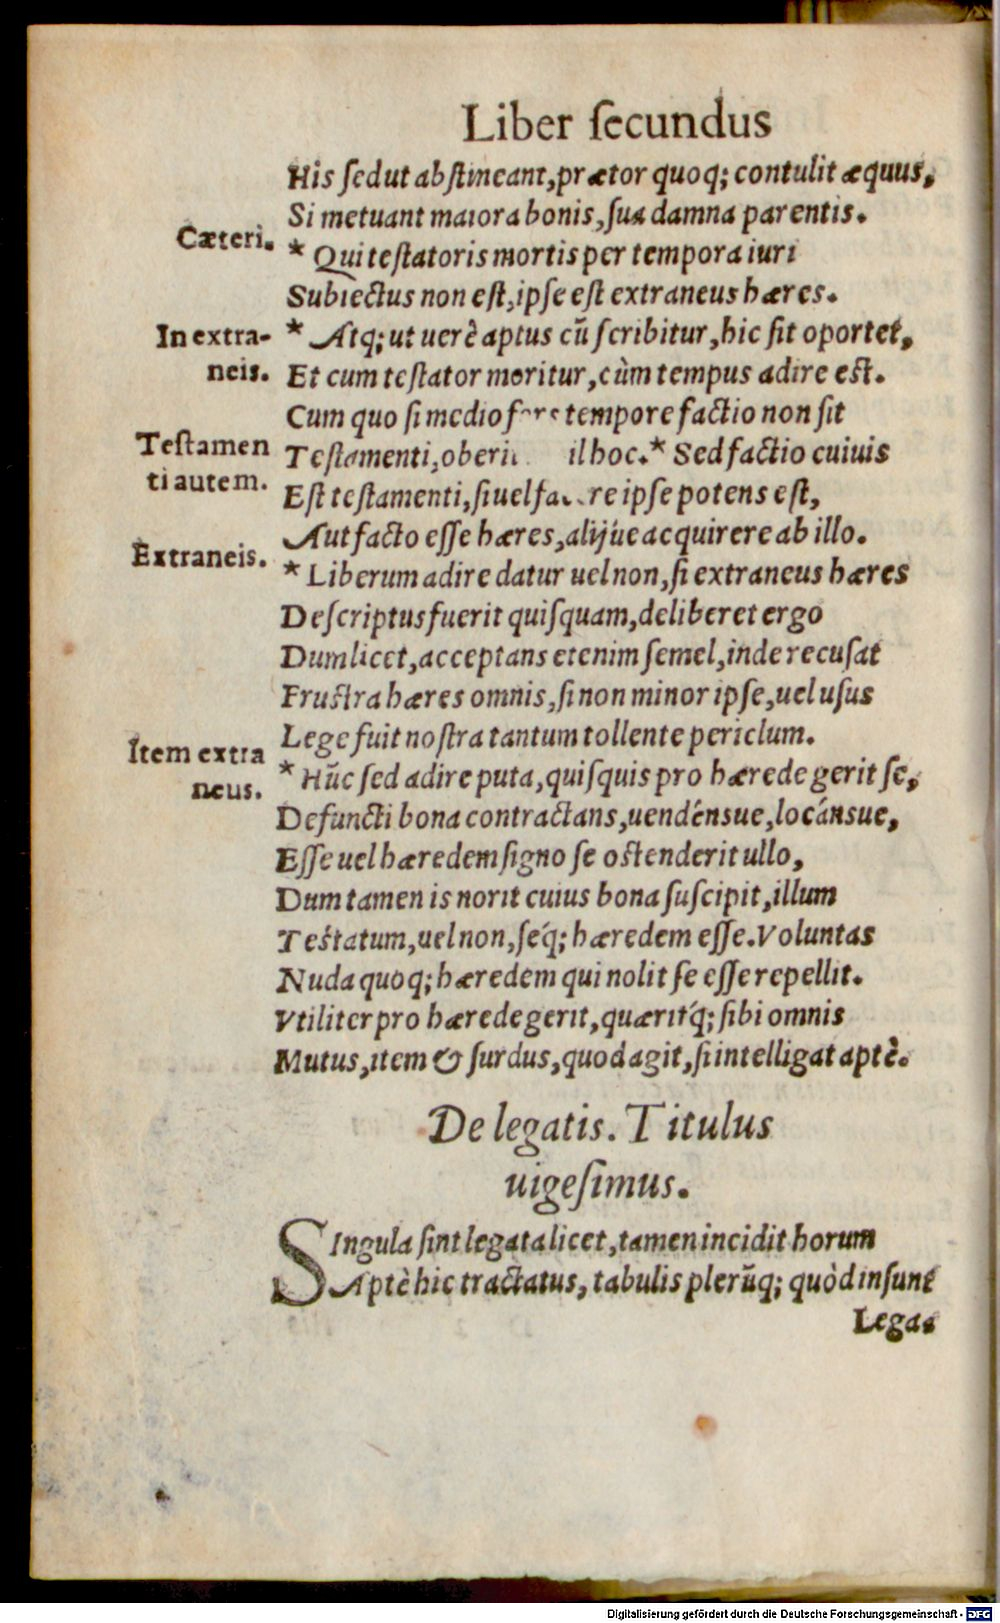 Liber secundus
His sed ut abstineant, prætor quoq; contulit æquus,
Si metuant maiora bonis, sua damna parentis.
Cæteri.
* Qui testatoris mortis per tempora iuri
Subiectus non est, ipse est extraneus hæres.
In extra-
neis.
* Atq; ut uerè aptus cũ scribitur, hic sit oportet,
Et cum testator moritur, cùm tempus adire est.
Cum quo si medio tempore factio non sit
Testamen
ti autem.
Testamenti, il hoc. * Sed factio cuiuis
Est testamenti, si uel ipse potens est,
Aut facto esse hæres, alijúe acquirere ab illo.
Extraneis.
* Liberum adire datur uel non, si extraneus hæres
Descriptus fuerit quisquam, deliberet ergo
Dum licet, acceptans etenim semel, inde recusat
Frustra hæres omnis, si non minor ipse, uel usus
Lege fuit nostra tantum tollente periclum.
Item extra
neus.
* Hũc sed adire puta, quisquis pro hærede gerit se,
Defuncti bona contractans, uendénsue, locánsue,
Esse uel hæredem signo se ostenderit ullo,
Dum tamen is norit cuius bona suscipit, illum
Testatum, uel non, seq́; hæredem esse. Voluntas
Nuda quoq; hæredem qui nolit se esse repellit.
Vtiliter pro hærede gerit, quæritq́; sibi omnis
Mutus, item & surdus, quod agit, si intelligat aptè.
De legatis. Titulus
uigesimus.
SIngula sint legata licet, tamen incidit horum
Aptè hic tractatus, tabulis plerũq; quòd insunt
Lega-
Digitalisierung gefördert durch die Deutsche Forschungsgemeinschaft - DFG